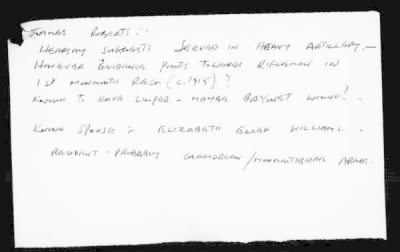 James Roberts :-
Hearsay suggests served in Heavy Artillery. -
However evidence points towards Rifleman in
1st Monmouth Reg (c.1915) ?
Known to have limped - maybe bayonet wound ?.
Known spouse :- Elizabeth Ellen Williams.
Resident - probably Glamorgan / Monmouthshire areas.